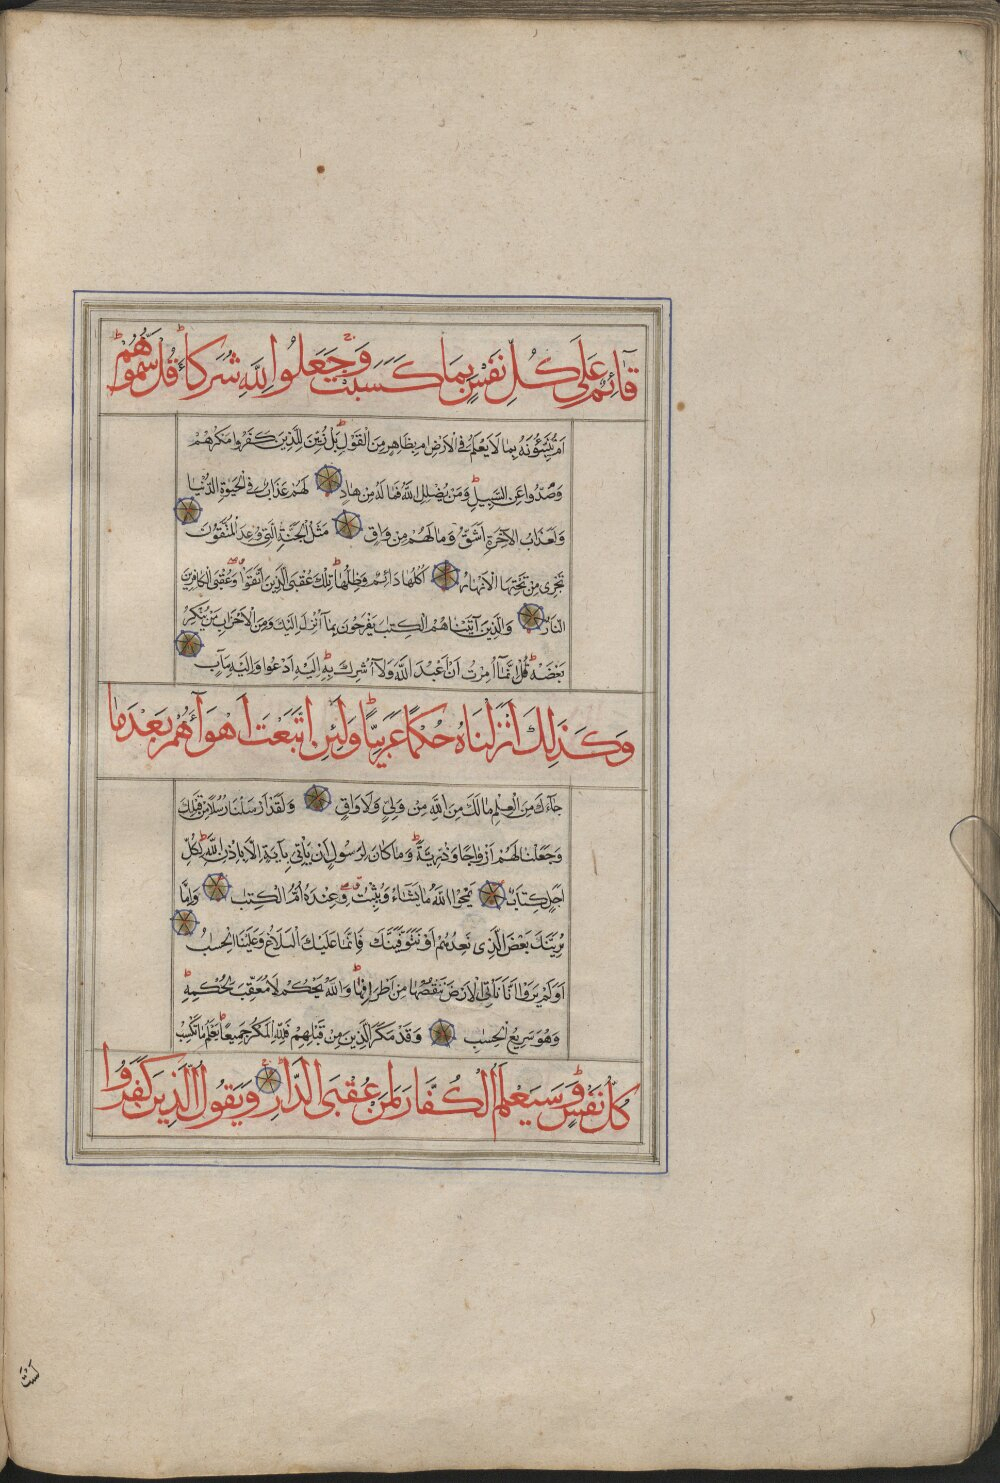 قَآئِمٌ عَلَى كُلِّ نَفْسٍ بِمَا كَسَبَتْ وَجَعَلُوا لِلَّهِ شُرَكَآءَ قُلْ سَمُّوهُمْ
اَمْ تُنَبِّئُونَهُ بِمَا لَا يَعْلَمُ فِي الْاَرْضِ اَمْ بِظَاهِرٍ مِنَ الْقَوْلِ بَلْ زُيِّنَ لِلَّذِينَ كَفَرُوا مَكْرُهُمْ
وَصُدُّوا عَنِ السَّبِيلِ وَمَنْ يُضْلِلِ اللَّهُ فَمَا لَهُ مِنْ هَادٍ لَهُمْ عَذَابٌ فِي الْحَيٰوةِ الدُّنْيَا
وَلَعَذَابُ الْآخِرَةِ اَشَقُّ وَمَا لَهُمْ مِنَ اللَّهِ مِنْ وَاقٍ مَثَلُ الْجَنَّةِ الَّتِي وُعِدَ الْمُتَّقُونَ
تَجْرِي مِنْ تَحْتِهَا الْاَنْهَارُ اُكُلُهَا دَائِمٌ وَظِلُّهَا تِلْكَ عُقْبَى الَّذِينَ اتَّقَوْا وَعُقْبَى الْكَافِرِينَ
النَّارُ وَالَّذِينَ آتَيْنَاهُمُ الْكِتٰبَ يَفْرَحُونَ بِمَآ اُنْزِلَ اِلَيْكَ وَمِنَ الْاَحْزَابِ مَنْ يُنْكِرُ
بَعْضَهُ قُلْ اِنَّمَآ اُمِرْتُ اَنْ اَعْبُدَ اللَّهَ وَلَآ اُشْرِكَ بِهِ اِلَيْهِ اَدْعُوا وَاِلَيْهِ مَآبِ
وَكَذَلِكَ اَنْزَلْنَاهُ حُكْمًا عَرَبِيًّا وَلَئِنِ اتَّبَعْتَ اَهْوَآءَهُمْ بَعْدَ مَا
جَآءَكَ مِنَ الْعِلْمِ مَا لَكَ مِنَ اللَّهِ مِنْ وَلِيٍّ وَلَا وَاقٍ وَلَقَدْ اَرْسَلْنَا رُسُلًا مِنْ قَبْلِكَ
وَجَعَلْنَا لَهُمْ اَزْوَاجًا وَذُرِّيَّةً وَمَا كَانَ لِرَسُولٍ اَنْ يَأْتِيَ بِآيَةٍ اِلَّا بِاِذْنِ اللَّهِ لِكُلِّ
اَجَلٍ كِتَابٌ يَمْحُوا اللَّهُ مَا يَشَآءُ وَيُثْبِتُ وَعِنْدَهُ اُمُّ الْكِتٰبِ وَاِمَّا
نُرِيَنَّكَ بَعْضَ الَّذِي نَعِدُهُمْ اَوْ نَتَوَفَّيَنَّكَ فَاِنَّمَا عَلَيْكَ الْبَلَاغُ وَعَلَيْنَا الْحِسَابُ
اَوَلَمْ يَرَوْا اَنَّا نَأْتِي الْاَرْضَ نَنْقُصُهَا مِنْ اَطْرَافِهَا وَاللَّهُ يَحْكُمُ لَا مُعَقِّبَ لِحُكْمِهِ
وَهُوَ سَرِيعُ الْحِسَابِ وَقَدْ مَكَرَ الَّذِينَ مِنْ قَبْلِهِمْ فَلِلَّهِ الْمَكْرُ جَمِيعًا يَعْلَمُ مَا تَكْسِبُ
كُلُّ نَفْسٍ وَسَيَعْلَمُ الْكُفَّارُ لِمَنْ عُقْبَى الدَّارِ وَيَقُولُ الَّذِينَ كَفَرُوا
لَسْتَ